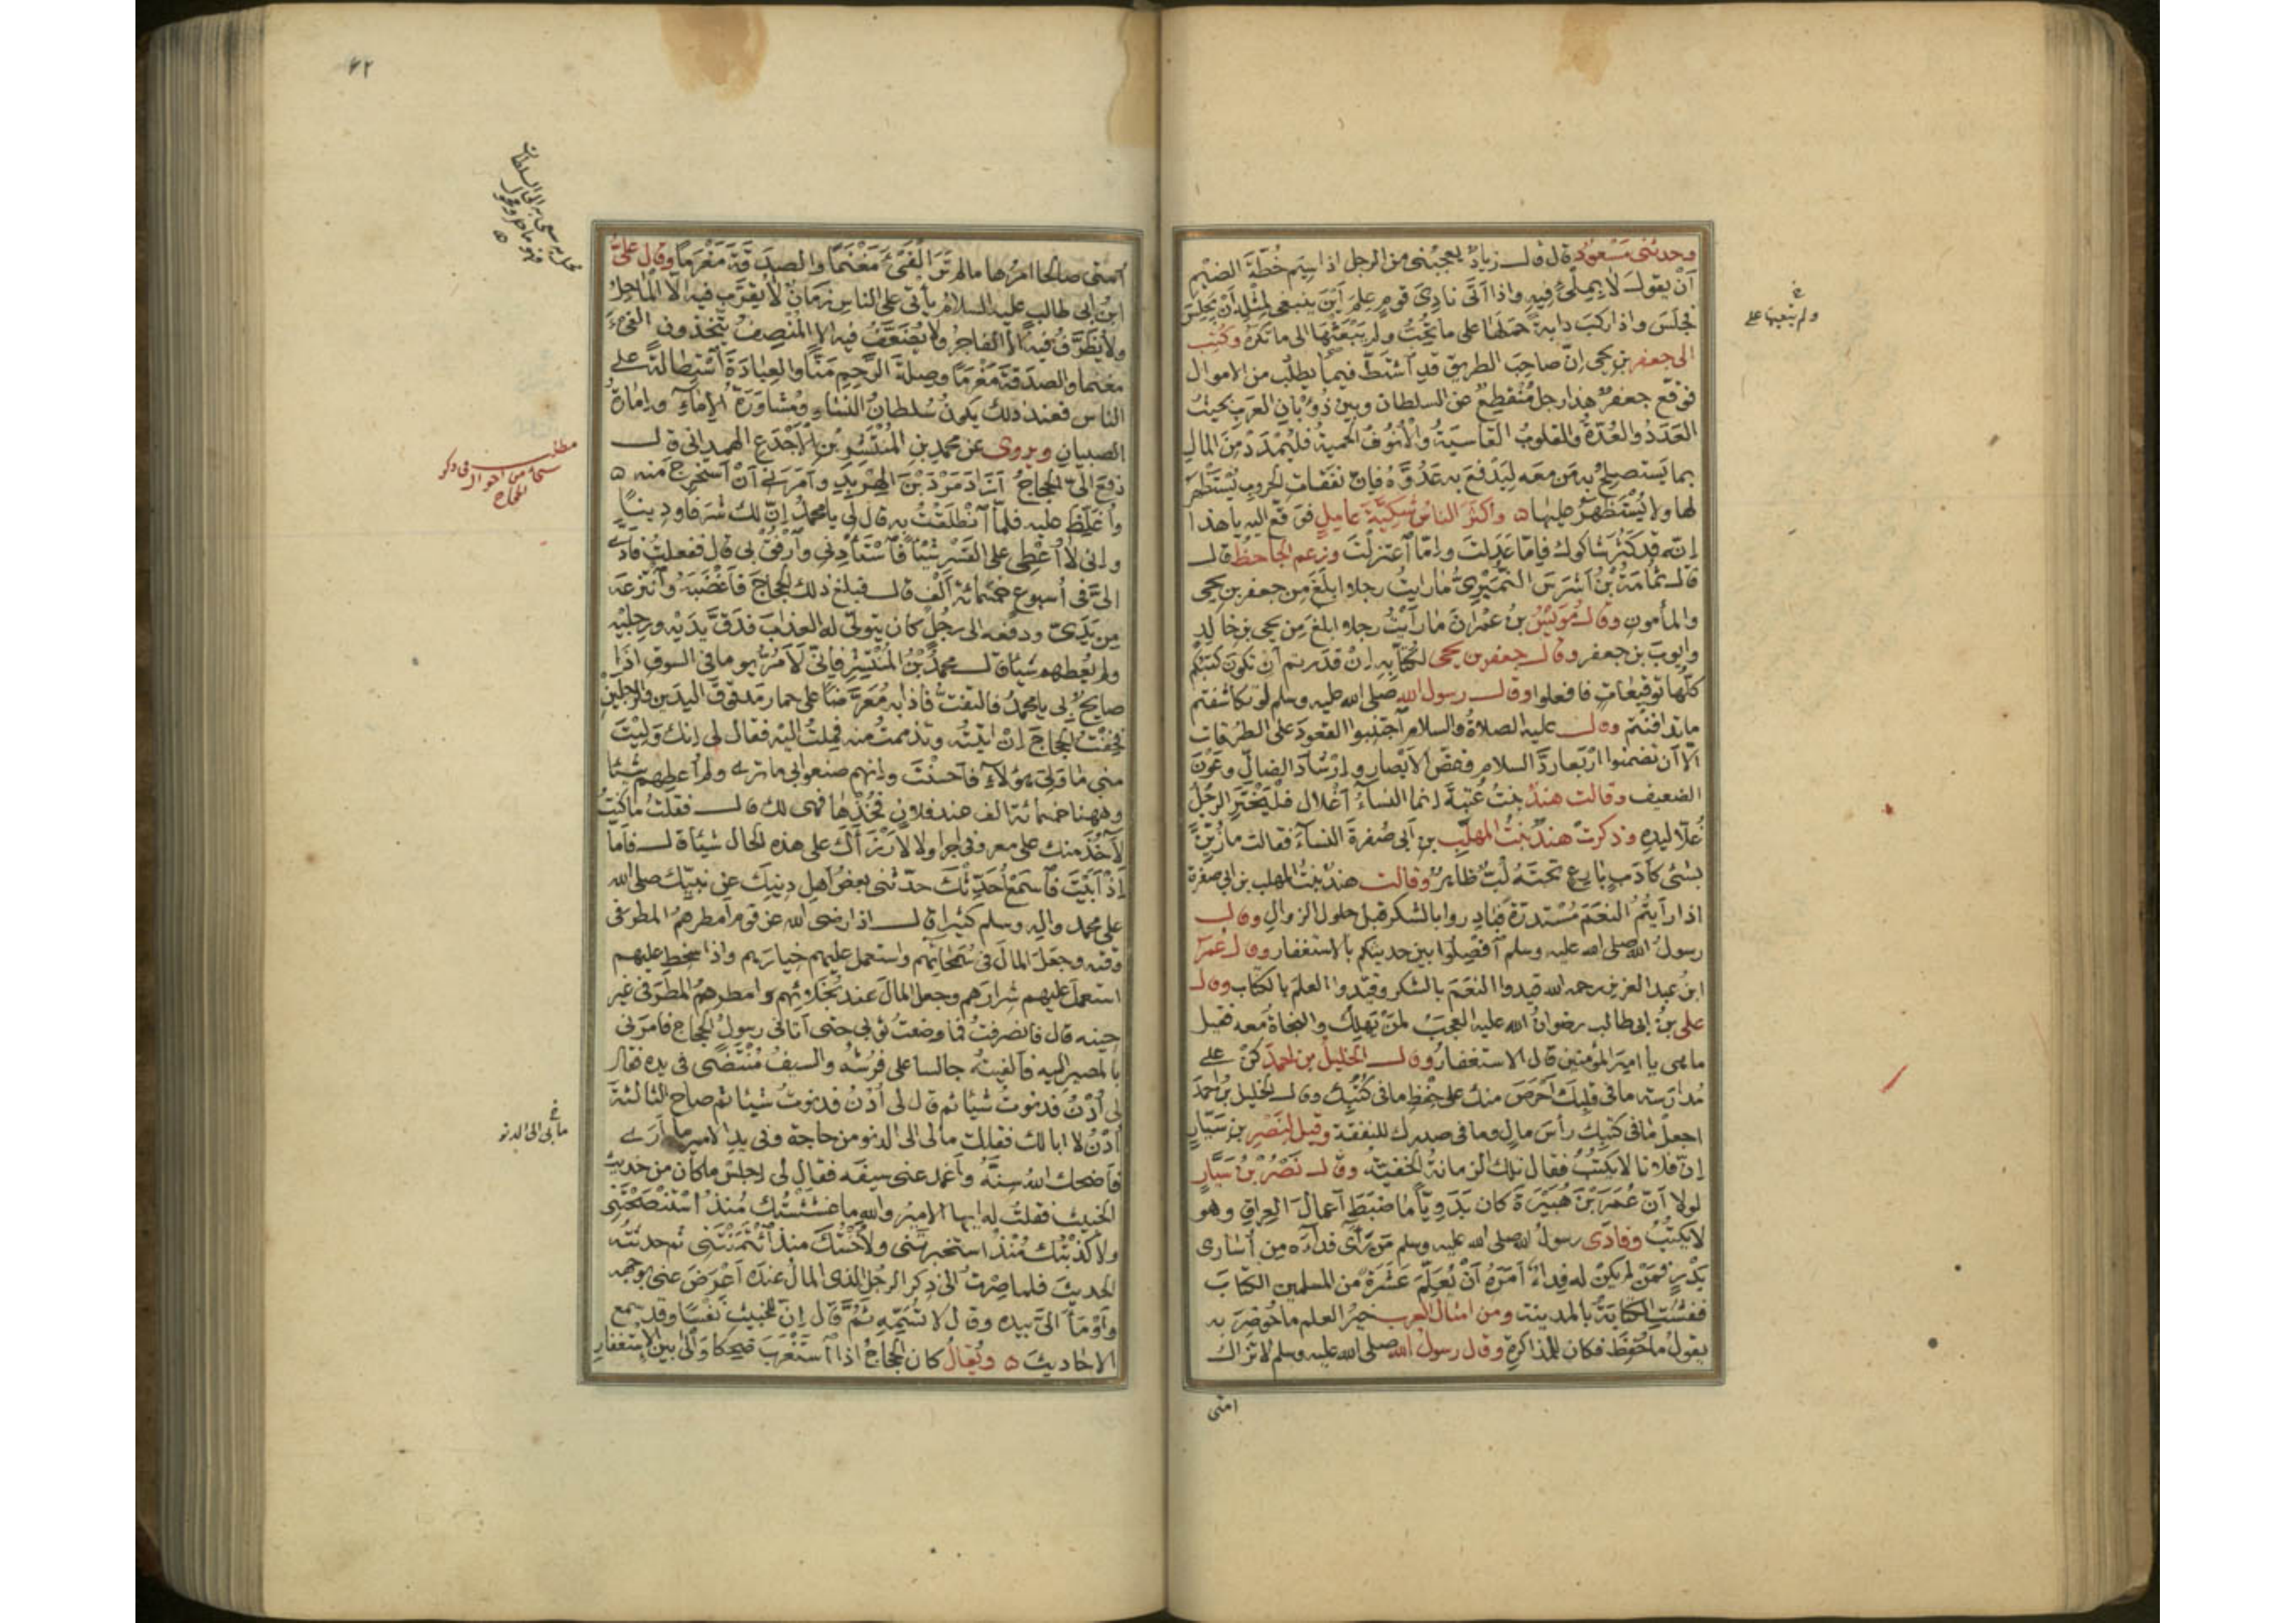 وحدثني مسعود قال قال زياد يعجبني من الرجل اذا سيم خطة الضيم
أن يقول لا بملئ فيه واذا اتى نادى قوم علم أين ينبغي لمثله أن يجلس
فجلس واذا ركب دابة حملها على ما يحب ولم يبعثها الى ما تكره وكتب
الى جعفر بن يحيى إن صاحب الطريق قد اشتط فيما يطلب من الاموال
فوقع جعفر هذا رجل منقطع عن السلطان وبين ذؤبان العرب بحيث
العدد والعدة والقلوب القاسية والأنوف الحمية فليمدد من المال
بما يستصلح به من معه ليدفع به عدوه فإن نفقات الحروب يستظهر
لها ولا يستظهر عليها ه واكثر الناس شكية عامل فوقع اليه يا هذا
إنه قد كثر شاكوك فإما عدلت وإما اعتزلت وزعم الجاحظ قال
قال ثمامة بن أشرس النميري ما رايت رجلا ابلغ من جعفر بن يحيى
والمأمون وقال مويس بن عمران ما رأيت رجلا ابلغ من يحيى بن خالد
وايوب بن جعفر وقال جعفر بن يحيى لكتابه إن قدرتم أن تكون كتبكم
كلها توقيعات فافعلوا وقال رسول الله صلى الله عليه وسلم لو تكاشفتم
ما تدافنتم وقال عليه الصلاة والسلام اجتنبوا القعود على الطرقات
الا أن تضمنوا اربعا رد السلام وغض الأبصار وإرشاد الضال وعون
الضعيف وقالت هند بنت عتبة إنما النساء أغلال فليختر الرجل
غلا ليده وذكرت هند بنت المهلب بن أبي صفرة النساء فقالت ما زين
بشئ كأدب بارع تحته لب ظاهر وقالت هند بنت المهلب بن ابي صفرة
اذا رأيتم النعم مستدرة فبادروا بالشكر قبل حلول الزوال وقال
رسول الله صلى الله عليه وسلم أفصلوا بين حديثكم بالاستغفار وقال عمر
ابن عبد العزيز رحمه الله قيدوا النعم بالشكر وقيدوا العلم بالكتاب وقال
على بن ابي طالب رضوان الله عليه العجب لمن يهلك والنجاة معه فقيل
ما هى يا امير المؤمنين قال الاستغفار وقال الخليل بن احمد كن على
مدارسة ما في قلبك أحرص منك على حفظ ما في كتبك وقال الخليل بن احمد
اجعل ما في كتبك رأس مال وما في صدرك للنفقة وقيل لنصر بن سيار
إن فلانا لا يكتب فقال تلك الزمانة الخفية وقال نصر بن سيار
لولا أن عمر بن هبيرة كان بدويا ما ضبط أعمال العراق وهو
لا يكتب وفادى رسول الله صلى الله عليه وسلم من رأى فداءه من أسارى
بدر فمن لم يكن له فداء أمره أن يعلم عشرة من المسلمين الكتاب
ففشت الكتابة بالمدينة ومن امثال العرب خير العلم ما حوضر به
يقول ما حفظ فكان للمذاكرة وقال رسول الله صلى الله عليه وسلم لا تزال
امتي
ولم يتعبها على
٤٢
أمتي صالحا امرها ما لم تر الفئ مغنما والصدقة مغرما وقال على
ابن ابي طالب عليه السلام يأتي على الناس زمان لا يقرب فيه الا الماحل
ولا يظرف فيه الا الفاجر ولا يضعف فيه الا المنصف يتخذون الفئ
مغنما والصدقة مغرما وصلة الرحم منا والعبادة استطالة على
الناس فعند ذلك يكون سلطان النساء ومشاورة الإماء وإمارة
الصبيان ويروى عن محمد بن المنتشر بن الأجدع الهمداني قال
دفع الى الحجاج آزاد مرد بن الهربد وأمرني أن أستخرج منه ه
وأغلظ عليه فلما انطلقت به قال لي يا محمد إن لك شرفا ودينا
وإني لا أعطى على القسر شيئا فاستأدني وارفق بي قال ففعلت فأدى
الى في أسبوع خمسمائة ألف قال فبلغ ذلك الحجاج فأغضبه وانتزعه
من يدى ودفعه الى رجل كان يتولى له العذاب فدق يديه ورجليه
ولم يعطهم شيئا قال محمد بن المنتشر فإني لأمر يوما في السوق اذا
صايح بي يا محمد فالتفت فاذا به معرضا على حمار مدقوق اليدين والرجلين
فخفت الحجاج إن اتيته وتذممت منه فملت اليه فقال لي إنك وليت
مني ما ولى هؤلاء فأحسنت وإنهم صنعوا بي ما ترى ولم أعطهم شيئا
وههنا خمسمائة الف عند فلان فخذها فهى لك قال فقلت ما كنت
لآخذ منك على معروفي اجرا ولا لأرزأك على هذه الحال شيئا قال فأما
إذ أبيت فاسمع أحدثك حدثني بعض اهل دينك عن نبيك صلى الله
على محمد وآله وسلم كثيرا قال اذا رضى الله عن قوم أمطرهم المطر في
وقته وجعل المال في سمحائهم واستعمل عليهم خيارهم واذا سخط عليهم
استعمل عليهم شرارهم وجعل المال عند بخلائهم وامطرهم المطر في غير
حينه قال فانصرفت فما وضعت ثوبي حتى أتاني رسول الحجاج فأمرني
بالمصير اليه فألفيته جالسا على فرشه والسيف منتضى في يده فقال
لي أدن فدنوت شيئا ثم قال لي أدن فدنوت شيئا ثم صاح الثالثة
أدن لا ابا لك فقلت ما لي الى الدنو من حاجة وفي يد الامير ما أرى
فأضحك الله سنه وأغمد عني سيفه فقال لي اجلس ما كان من حديث
الخبيث فقلت له ايها الامير والله ما غششتك منذ استنصحتني
ولا كذبتك منذ استخبرتني ولا خنتك منذ ائتمنتني ثم حدثته
الحديث فلما صرت الى ذكر الرجل الذى المال عنده أعرض عني بوجهه
وأومأ الى بيده وقال لا تسمه ثم قال إن للخبيث نفسا وقد سمع
الاحاديث ه ويقال كان الحجاج اذا استغرب ضحكا والى بين الاستغفار
مطلب في ذكر
من احوال
الحجاج
ما بي الى الدنو